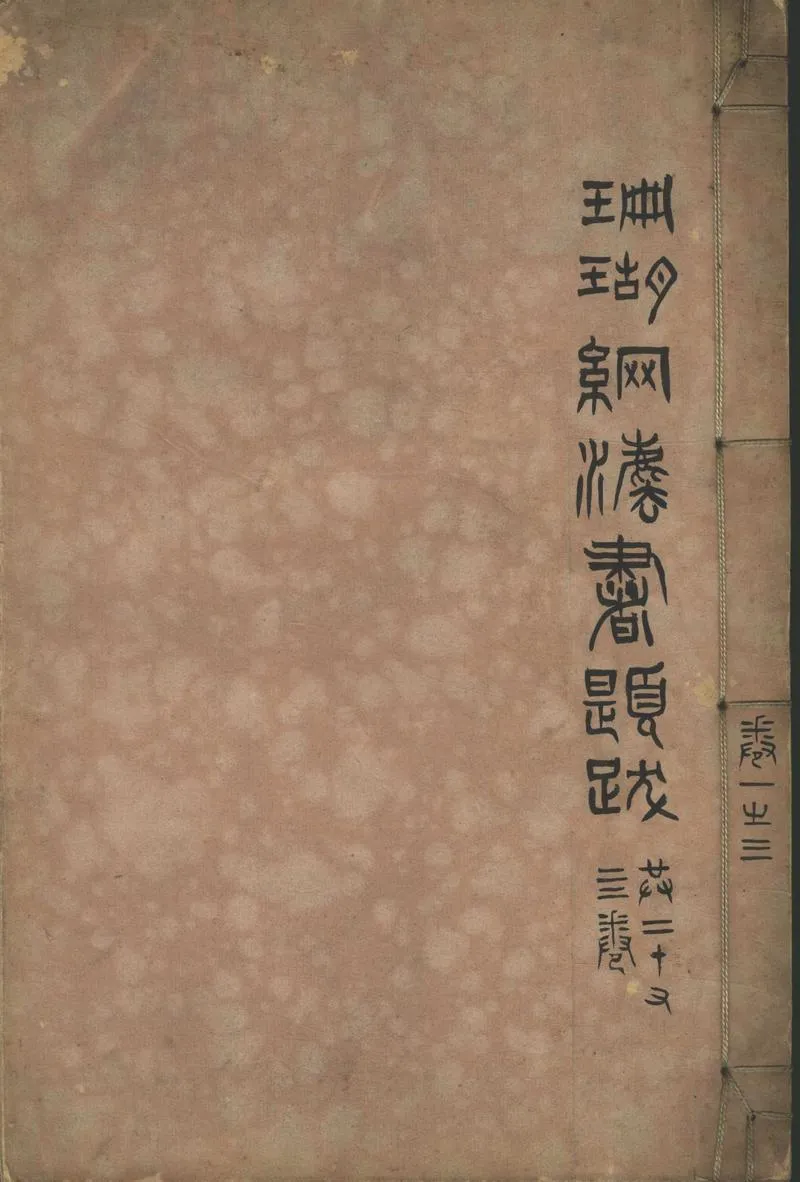 珊瑚網灋書題跋
共二十又
三卷
卷一之三